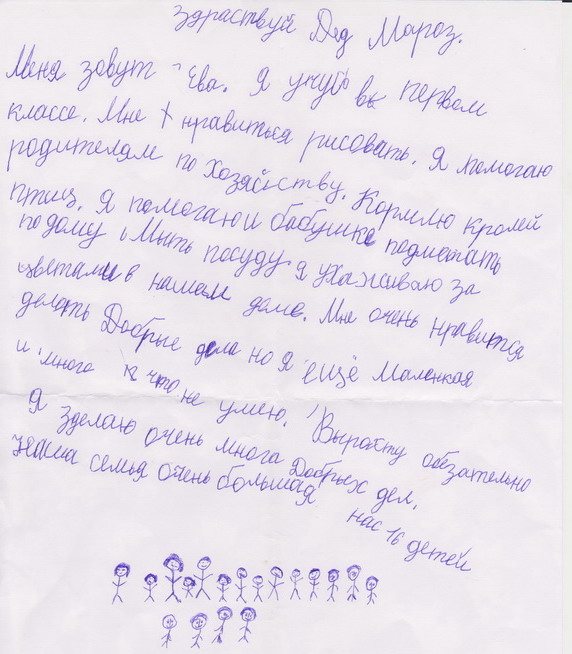 Здраствуй Дед Мароз.
Меня зовут Ева. Я учусь в первом
классе. Мне нравиться рисовать. Я помогаю
родителям по хозяйству. Кормлю кролей
птиц. Я помогаю и бабушке подметать
по дому, Мыть посуду я ухаживаю за
цветами в нашем доме. Мне очень нравится
делать Добрые дела но я ещё Маленкая
и много что не умею. Вырасту обезательно
я зделаю очень многа Добрых дел.
Наша семья очень большая нас 16 детей